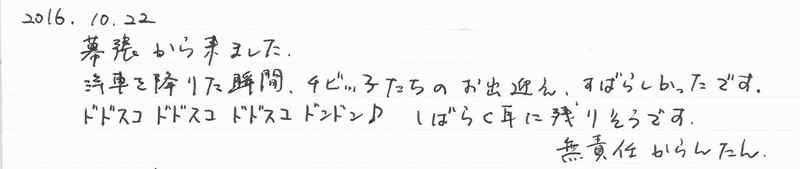 2016.10.22
幕張から来ました.
汽車を降りた瞬間、チビッ子たちのお出迎え、すばらしかったです.
ドドスコ ドドスコ ドドスコ ドンドン♪ しばらく耳に残りそうです.
無責任からんたん.